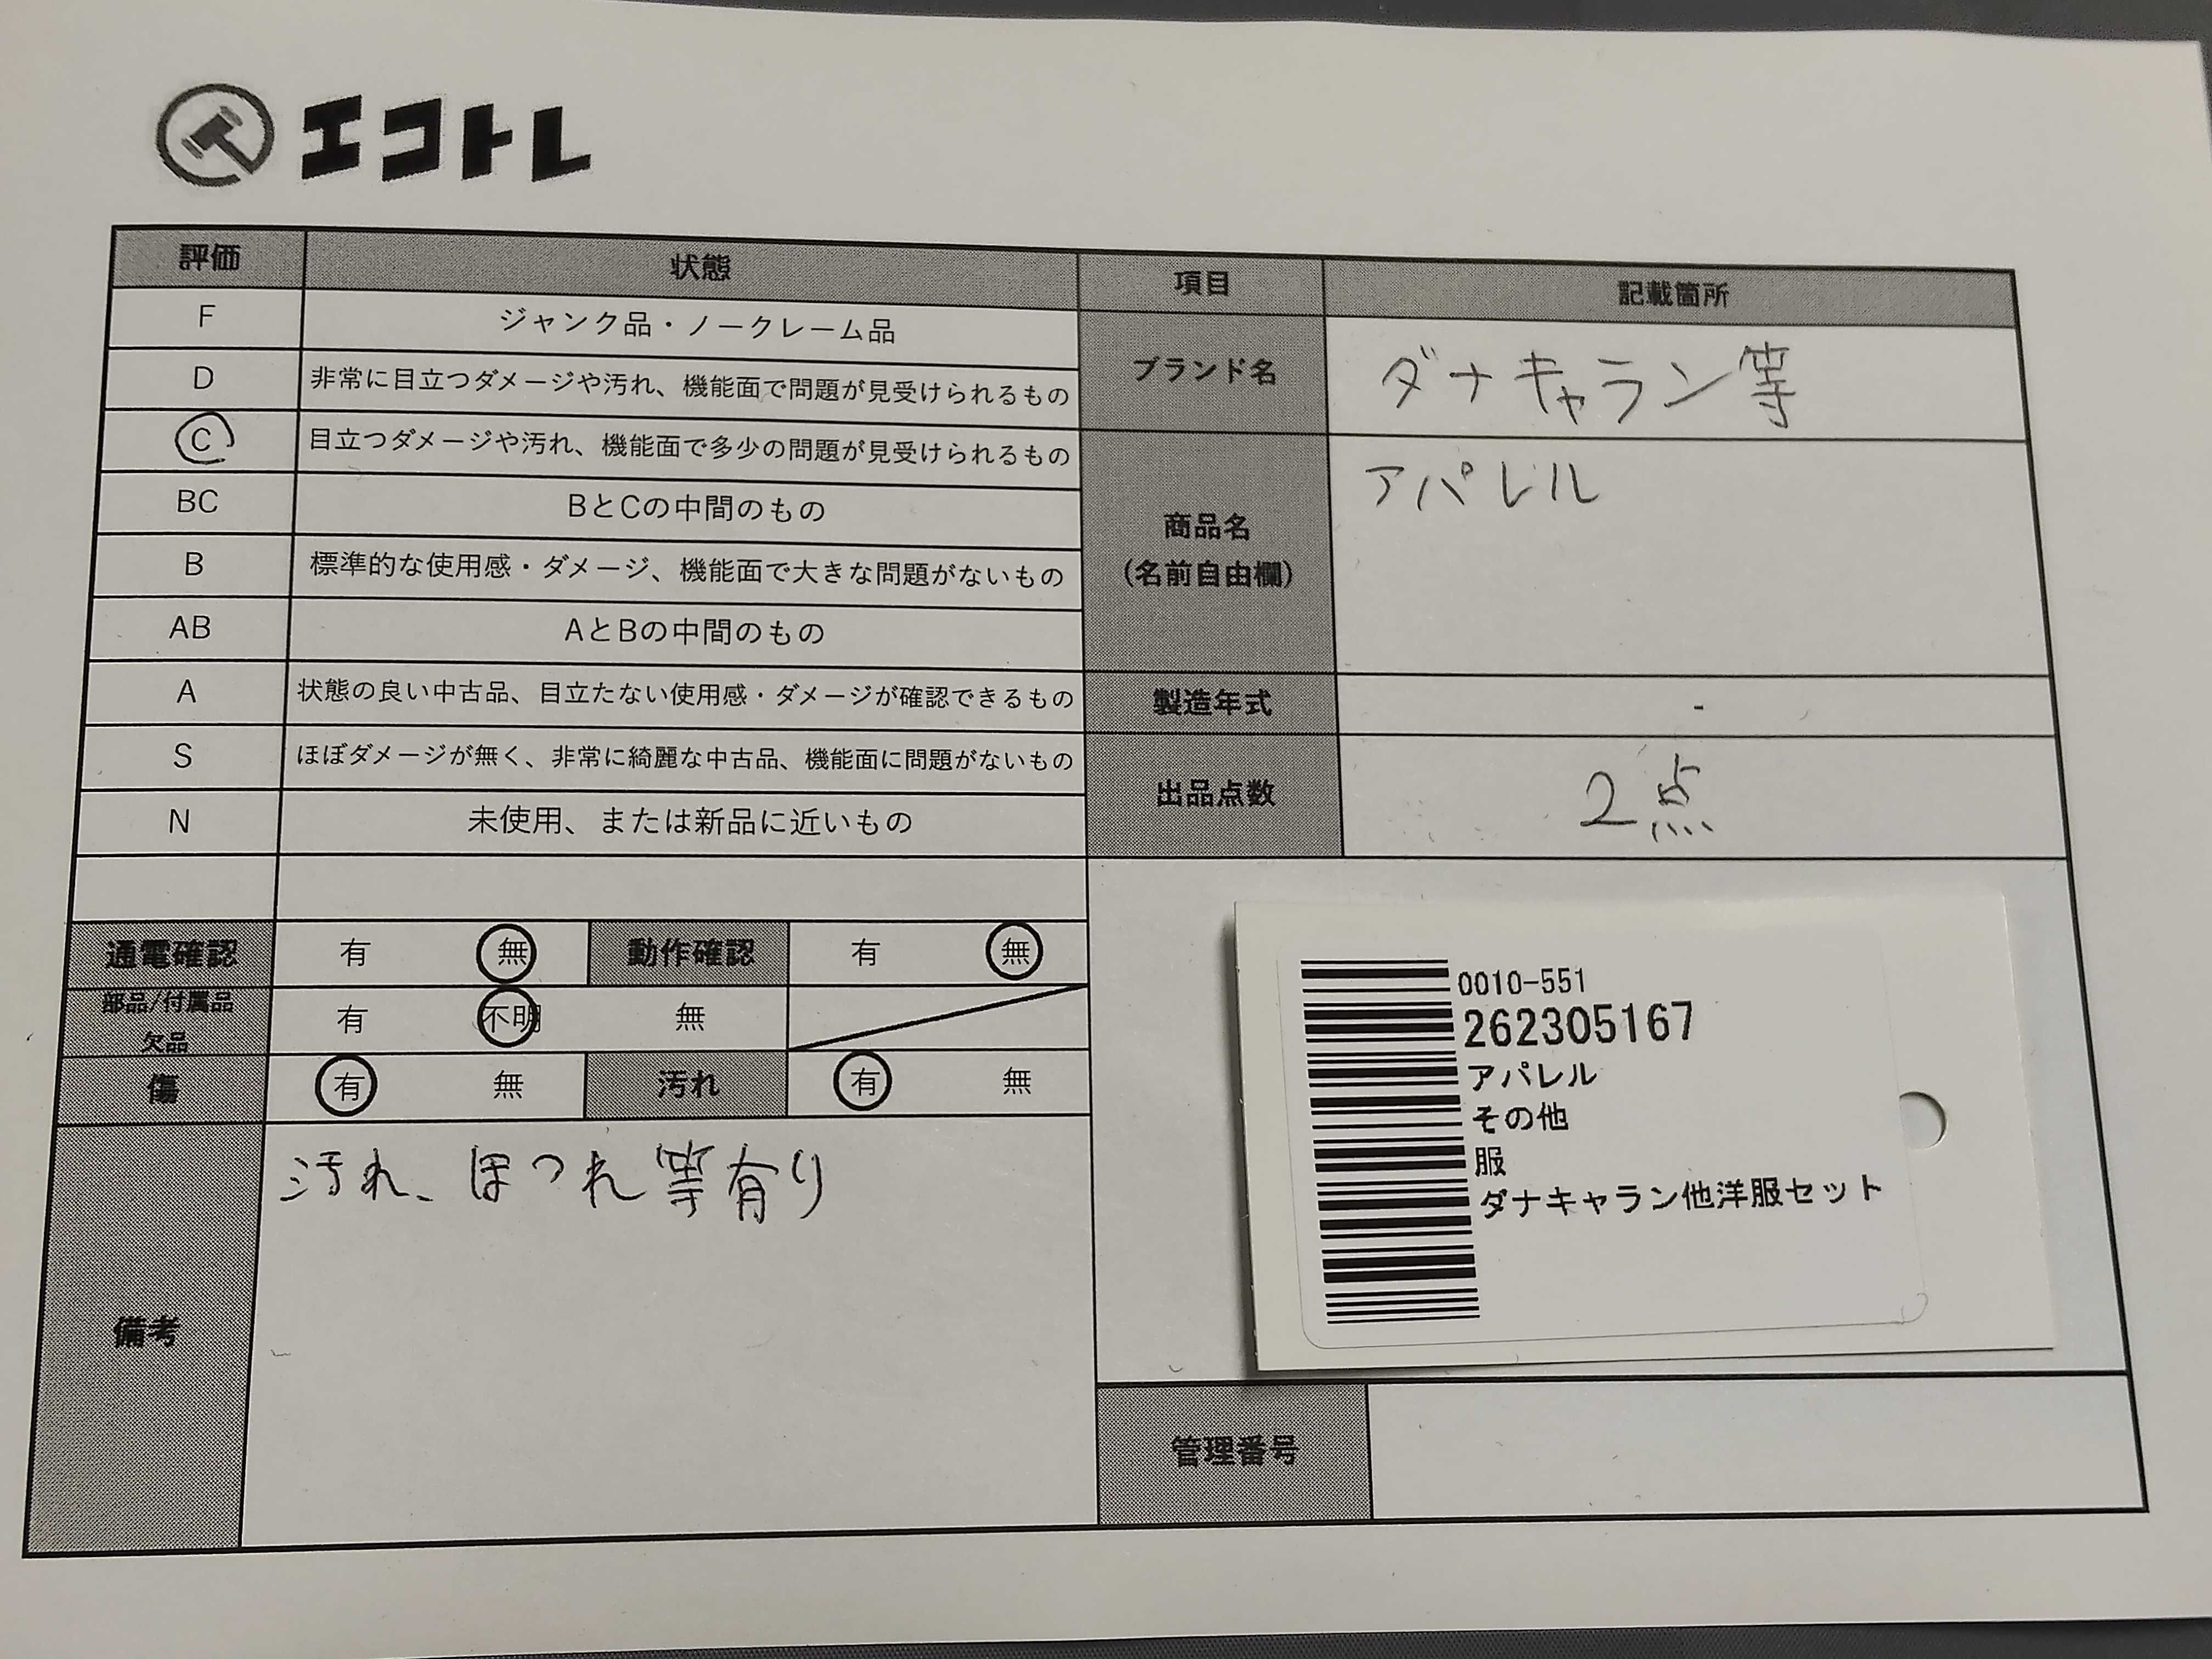 エコトレ
評価 状態 項目 記載箇所
F ジャンク品・ノークレーム品
D 非常に目立つダメージや汚れ、機能面で問題が見受けられるもの
C 目立つダメージや汚れ、機能面で多少の問題が見受けられるもの
BC BとCの中間のもの
B 標準的な使用感・ダメージ、機能面で大きな問題がないもの
AB AとBの中間のもの
A 状態の良い中古品、目立たない使用感・ダメージが確認できるもの
S ほぼダメージが無く、非常に綺麗な中古品、機能面に問題がないもの
N 未使用、または新品に近いもの
ブランド名 ダナキャラン等
商品名
(名前自由欄)
アパレル
製造年式 -
出品点数 2点
通電確認 有 無 動作確認 有 無
部品/付属品
欠品
有 不明 無
傷 有 無 汚れ 有 無
備考
汚れ、ほつれ等有り
0010-551
262305167
アパレル
その他
服
ダナキャラン他洋服セット
管理番号